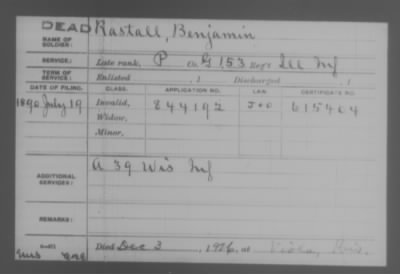 DEAD
NAME OF SOLDIER: Rastall, Benjamin
SERVICE: Late rank, P Co. G, 153 Reg't Ill Inf
TERM OF SERVICE: Enlisted , 1 Discharged , 1
DATE OF FILING. CLASS. APPLICATION NO. LAW. CERTIFICATE NO.
1890 July 19 Invalid, 844192 615404
Widow,
Minor,
ADDITIONAL SERVICES: A 39 Wis Inf
REMARKS:
Died Dec 3, 1926, at Viola, Wis.